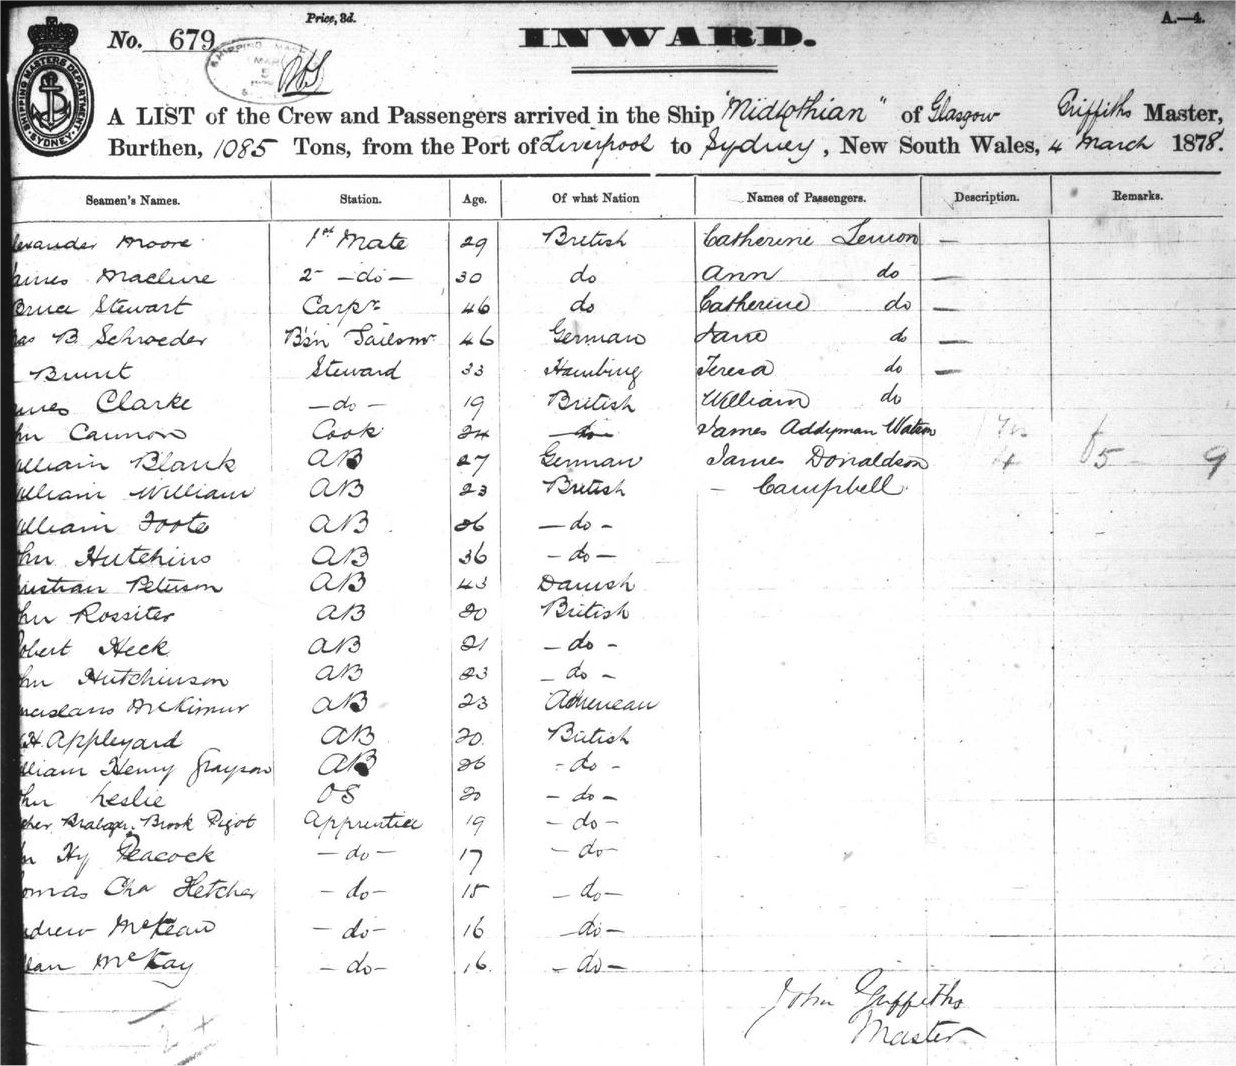 Price, 3d.
A.—4.
No. 679
INWARD.
SHIPPING MASTERS DEPARTMENT SYDNEY
SHIPPING MAR 5
A LIST of the Crew and Passengers arrived in the Ship "Midlothian" of Glasgow Griffiths Master,
Burthen, 1085 Tons, from the Port of Liverpool to Sydney, New South Wales, 4 March 1878.
Seamen's Names. Station. Age. Of what Nation Names of Passengers. Description. Remarks.
exander Moore 1st Mate 29 British Catherine Lemon —
ames Maclure 2 —do— 30 do Ann do —
Bruce Stewart Carpr 46 do Catherine do —
as B Schroeder B'sn Sailmr 46 German Jane do —
Brunt Steward 33 Hamburg Teresa do —
ames Clarke —do— 19 British William do
hn Cannon Cook 24 —do— James Addyman Watson
illiam Blank AB 27 German James Donaldson 4 £5 — 9
illiam William AB 23 British — Campbell
illiam Foote AB 26 —do—
hn Hutchins AB 36 —do—
ristian Peterson AB 43 Danish
hn Rossiter AB 20 British
obert Heck AB 21 —do—
hn Hutchinson AB 23 —do—
AB 23
H. Appleyard AB 20 British
illiam Henry Grayson AB 26 —do—
ohn Leslie OS 20 —do—
Brook Pigot Apprentice 19 —do—
hn Hy Peacock —do— 17 —do—
omas Cha Fletcher —do— 15 —do—
ndrew McKean —do— 16 —do—
llan McKay —do— 16 —do—
John Griffiths
Master